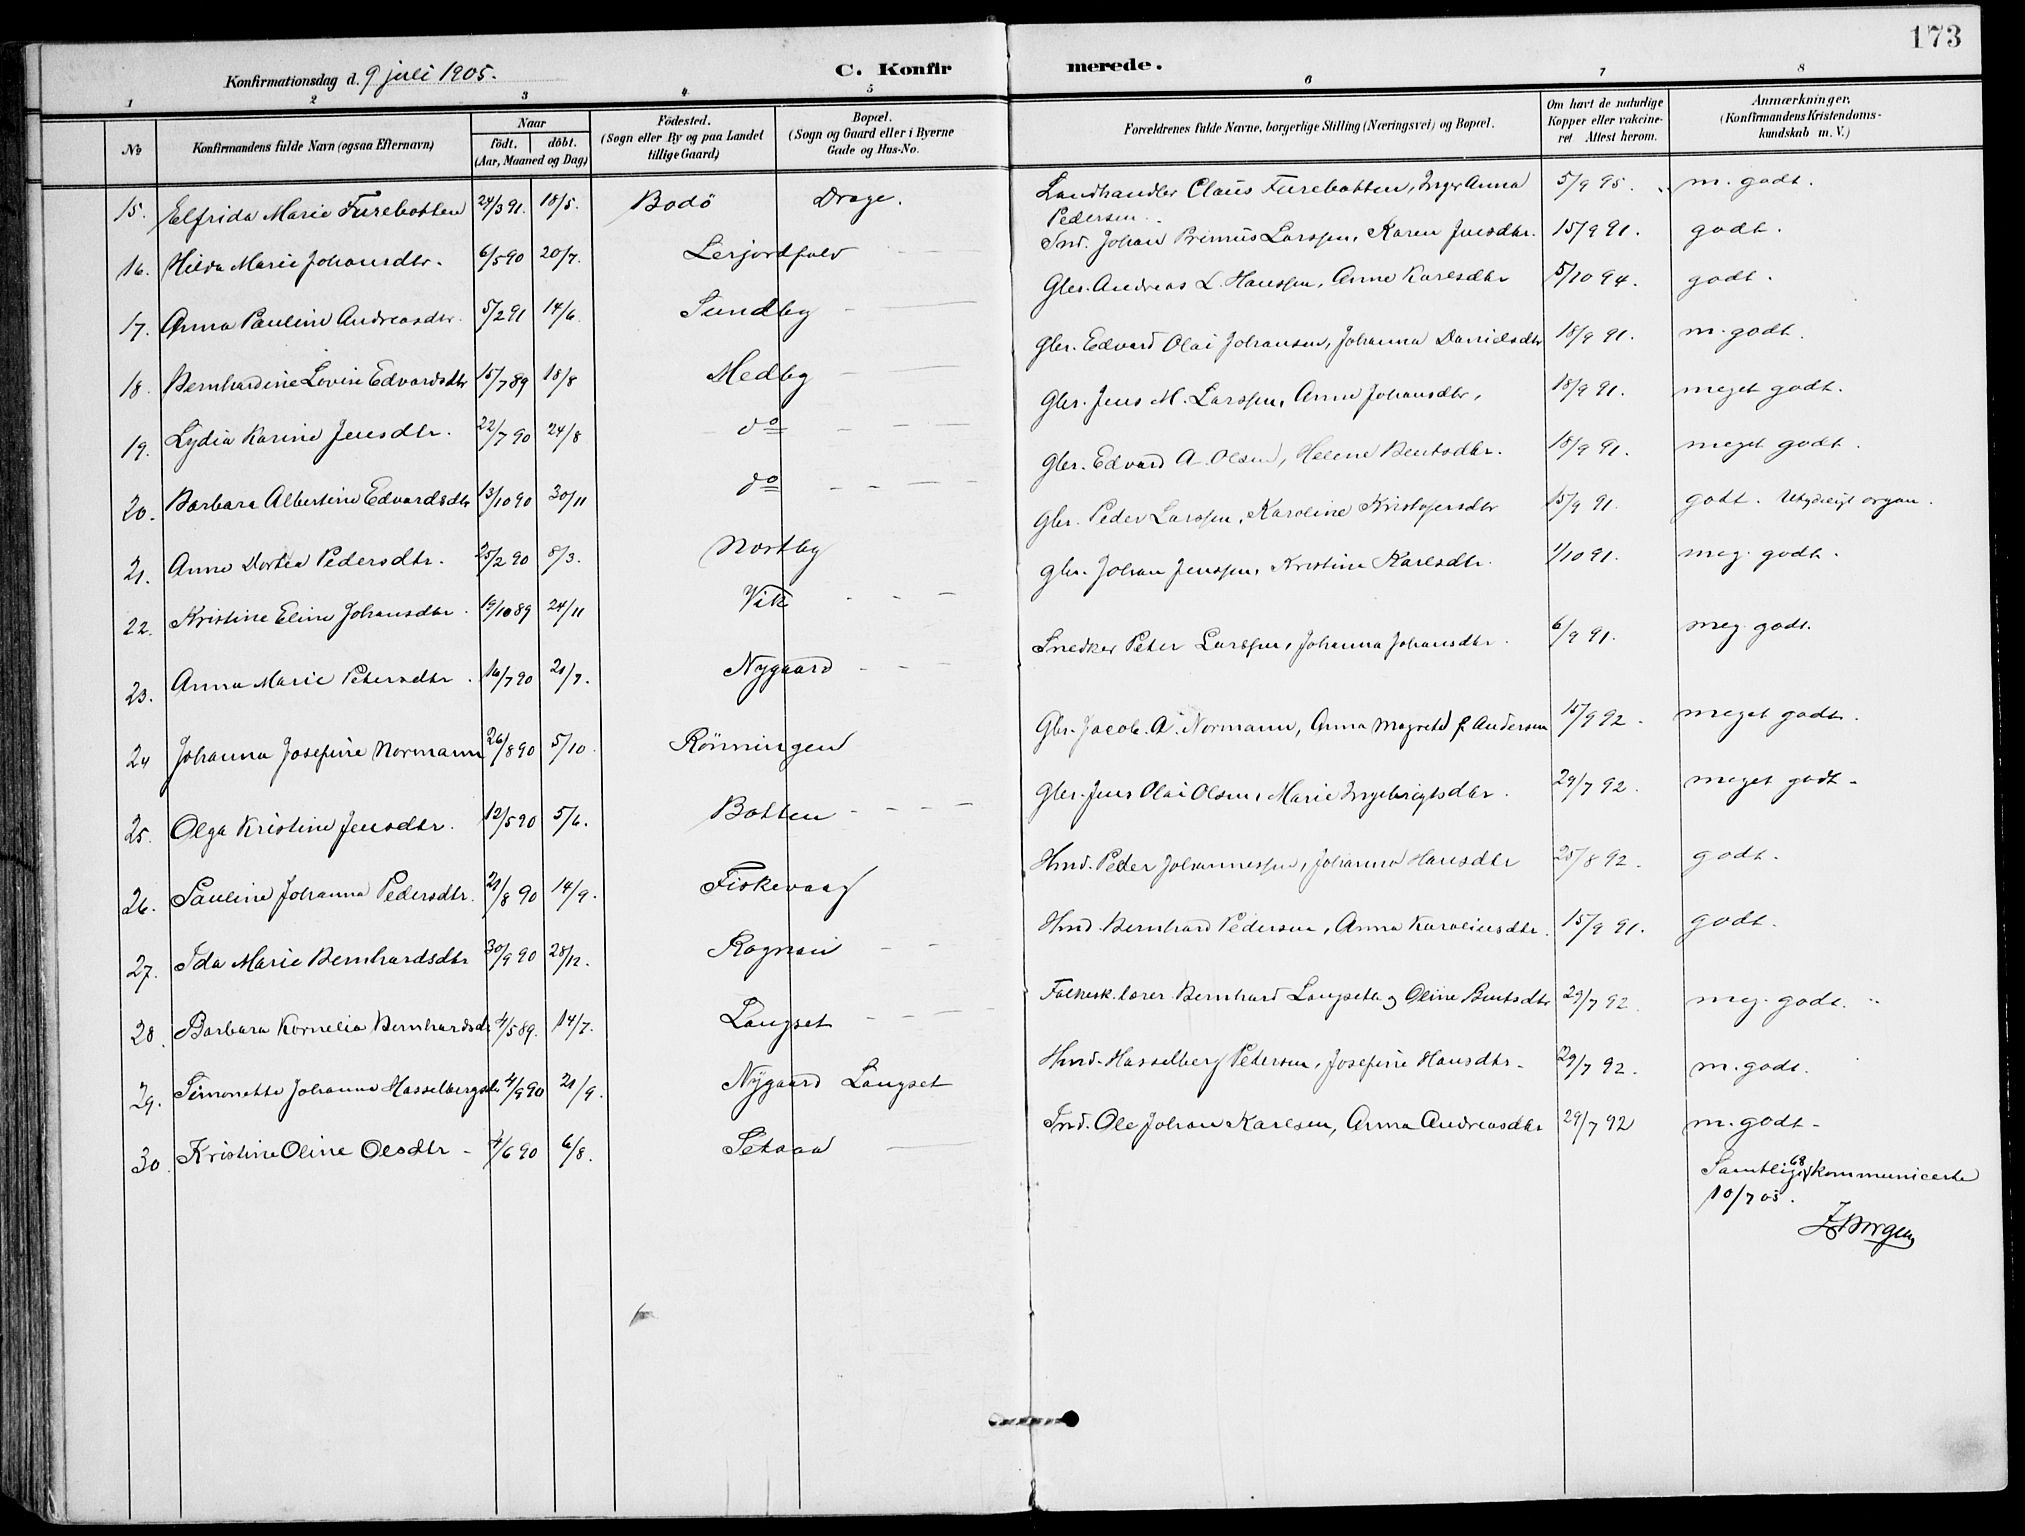 173
Konfirmationsdag d. 9 juli 1905.
C. Konfirmerede.
1 2 3 4 5 6 7 8
No
Konfirmandens fulde Navn (ogsaa Efternavn)
Naar
født. døbt.
(Aar, Maaned og Dag)
Fødested.
(Sogn eller By og paa Landet
tillige Gaard)
Bopæl.
(Sogn og Gaard eller i Byerne
Gade og Hus-No.
Forældrenes fulde Navne, borgerlige Stilling (Næringsvei) og Bopæl.
Om havt de naturlige
Kopper eller vakcine-
ret Attest herom.
Anmærkninger.
(Konfirmandens Kristendoms-
kundskab m. V.)
15. Elfrida Marie Furebotten 24/3 91 18/5. Bodö Drage. Landhandler Claus Furebotten, Inger Anna Pedersen 5/9 95. m. godt.
16. Hilda Marie Johansdtr. 6/5 90 20/7. Lerjordfald Ind. Johan Primus Larssen, Karen Jensdtr. 15/9 91. godt.
17. Anna Pauline Andreasdtr. 5/2 91 14/6. Sundby Gbr. Andreas L. Hanssen, Anne Karlsdtr 5/10 94. godt.
18. Bernhardine Lovise Edvardsdtr 15/7 89 18/8 Medby Gbr. Edvard Olai Johansen, Johanna Danielsdtr 18/9 91. m. godt.
19. Lydia Karine Jensdtr. 22/7 90 24/8 do Gbr. Jens M. Larssen, Anne Johansdtr, 18/9 91. meget godt.
20. Barbara Albertine Edvardsdtr 13/10 90 30/11 do Gbr. Edvard A. Olsen, Helene Bentsdtr. 18/9 91. meget godt.
21. Anne Dortea Pedersdtr. 25/2 90 8/3. Nestby Gbr. Peder Larssen, Karoline Kristofersdtr 15/9 91. godt. Utydeligt organ.
22. Kristine Eline Johansdtr. 19/10 89 24/11 Vik Gbr. Johan Jenssen, Kristine Karlsdtr. 1/10 91. meg. godt.
23. Anna Marie Petersdtr. 16/7 90 21/7. Nygaard Snedker Peter Larssen, Johanna Johansdtr. 6/9 91. meg. godt.
24 Johanna Josefine Normann 26/8 90 5/10. Rönningen Gbr. Jacob. A. Normann, Anna Magrete f. Andersen 15/9 92. meget godt.
25. Olga Kristine Jensdtr. 12/5 90 5/6. Botten Gbr. Jens Olai Olsen, Marie Ingebrigtsdtr. 29/7 92. meget godt.
26. Pauline Johanna Pedersdtr. 21/8 90 14/9. Fiskevaag Hmd. Peder Johannessen, Johanna Hansdtr 25/8 92. godt.
27. Ida Marie Bernhardsdtr 30/9 90 28/12. Rognan Hmd. Bernhard Pedersen, Anna Karoliusdtr. 15/9 91. godt.
28. Barbara Kornelia Bernhardsdr 4/5 89. 14/7. Langset Folkesk.lærer Bernhard Langseth og Oline Bentsdtr 29/7 92. meg. godt.
29. Simonette Johanne Hasselbergsdtr 4/9 90 21/9. Nygaard Langset Hmd. Hasselberg Pedersen, Josefine Hansdtr. 29/7 92. m. godt.
30. Kristine Oline Olsdtr - 4/6 90 6/8. Setsaa Ind. Ole Johan Karlsen, Anna Andreasdtr 29/7 92 m. godt -
Samtlige 68 kommunicerte
10/7 05.